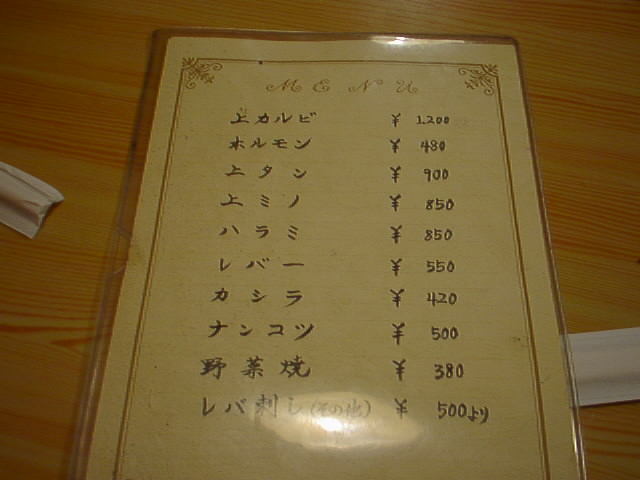 MENU
上カルビ ¥ 1.200
ホルモン ¥ 480
上タン ¥ 900
上ミノ ¥ 850
ハラミ ¥ 850
レバー ¥ 550
カシラ ¥ 420
ナンコツ ¥ 500
野菜焼 ¥ 380
レバ刺し(その他) ¥ 500より